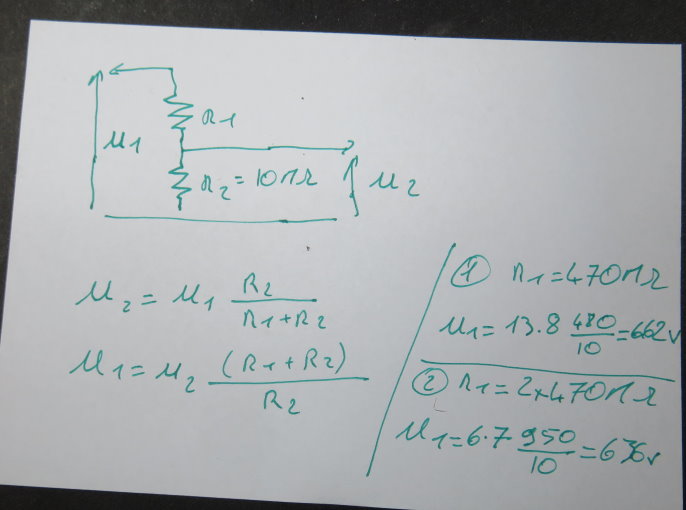 R1
U1
R2 = 10MΩ
U2
U2 = U1 R2 / R1+R2
U1 = U2 (R1+R2) / R2
① R1 = 470MΩ
U1 = 13.8 480/10 = 662v
② R1 = 2x470MΩ
U1 = 6.7 950/10 = 636v